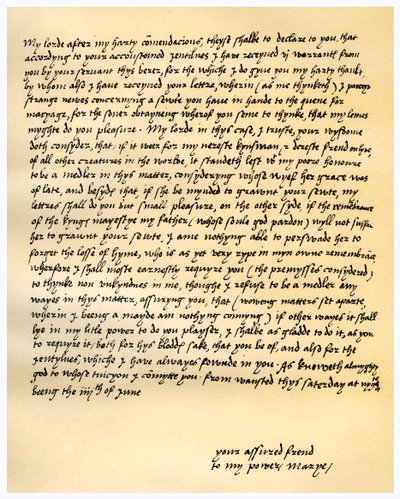 My lorde after my harty cōmendacions, theyse shalbe to declare to you, that
accordyng to your accustomed jentilnes I have receyued vj warrant from
you by your servant thys berer, for the whiche I do gyue you my harty thankes,
by whom also I have receyued your lettre, wherin (as me thynketh) I parceyu
strange newes concernyng a sewte you have in hande to the quene for
maryage, for the soner obtayneng wherof you seme to thynke, that my letters
myght do you pleasure. My lorde in thys case, I truste, your wysdome
doth consyder, that if it weer for my nereste kynsman, & dereste frend on lyue,
of all other creatures in the worlde, it standeth lest wt my poore honoure
to be a medler in thys matter, consyderyng whose wyef her grace was
of late, and besyde that if she be mynded to grawnt your sewte, my
lettres shall do you but small pleasure, on the other syde, if the remēbrance
of the kyngs mayestye my father (whose soule god pardon) wyll not suffre
her to grawnt your sewte, I ame nothyng able to perswade her to
forget the losse of hyme, who is as yet very rype in myn owne remembrāce,
wherfore I shall moste earnestly requyre you (the premysses consydered)
to thynke non vnkyndnes in me, thoughe I refuse to be a medler any
wayes in thys matter, assuryng you, that (woweng matters set aparte,
wherin I being a mayde am nothyng connyng) if other wayes it shall
lye in my litle power to do you playser, I shalbe as gladde to do it, as you
to requyre it, both for hys blodds sake, that you be of, and also for the
jentylnes, whiche I have alwayes fownde in you. As knoweth almyghty
god to whose tuicyon I cōmytte you. from wansted thys saterday at nyght
beeng the iiijth of June
your assured frend
to my power, Marye/